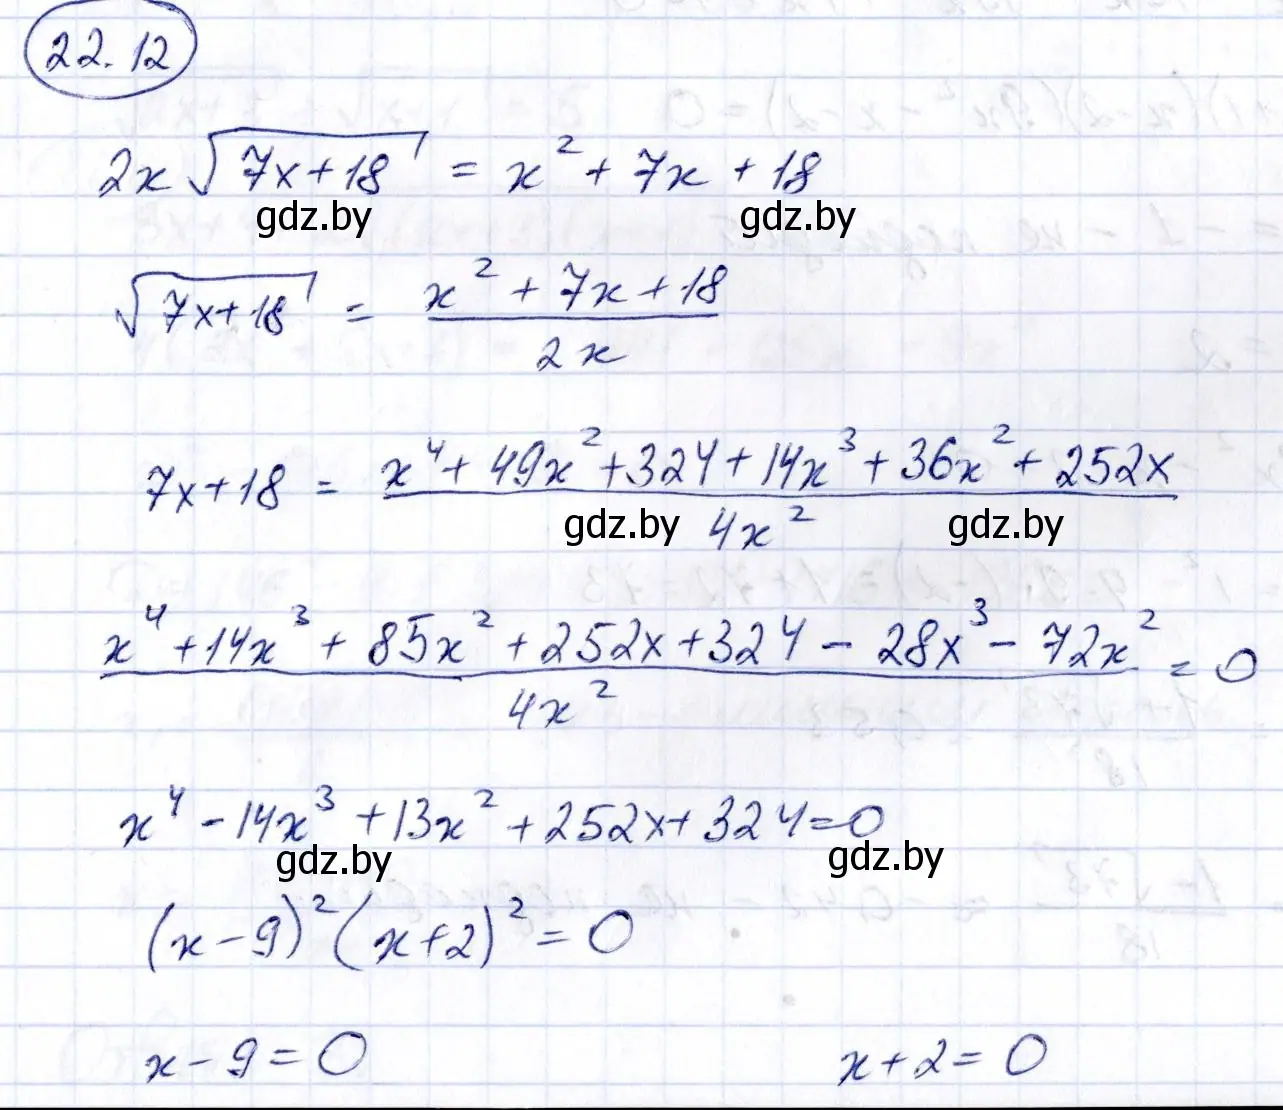 22.12
2x√(7x+18) = x² + 7x + 18
gdz.by gdz.by
√(7x+18) = (x² + 7x + 18)/(2x)
7x+18 = (x⁴ + 49x² + 324 + 14x³ + 36x² + 252x)/(4x²)
gdz.by gdz.by
(x⁴ + 14x³ + 85x² + 252x + 324 − 28x³ − 72x²)/(4x²) = 0
x⁴ − 14x³ + 13x² + 252x + 324 = 0
gdz.by gdz.by
(x−9)²(x+2)² = 0
x−9=0 x+2=0